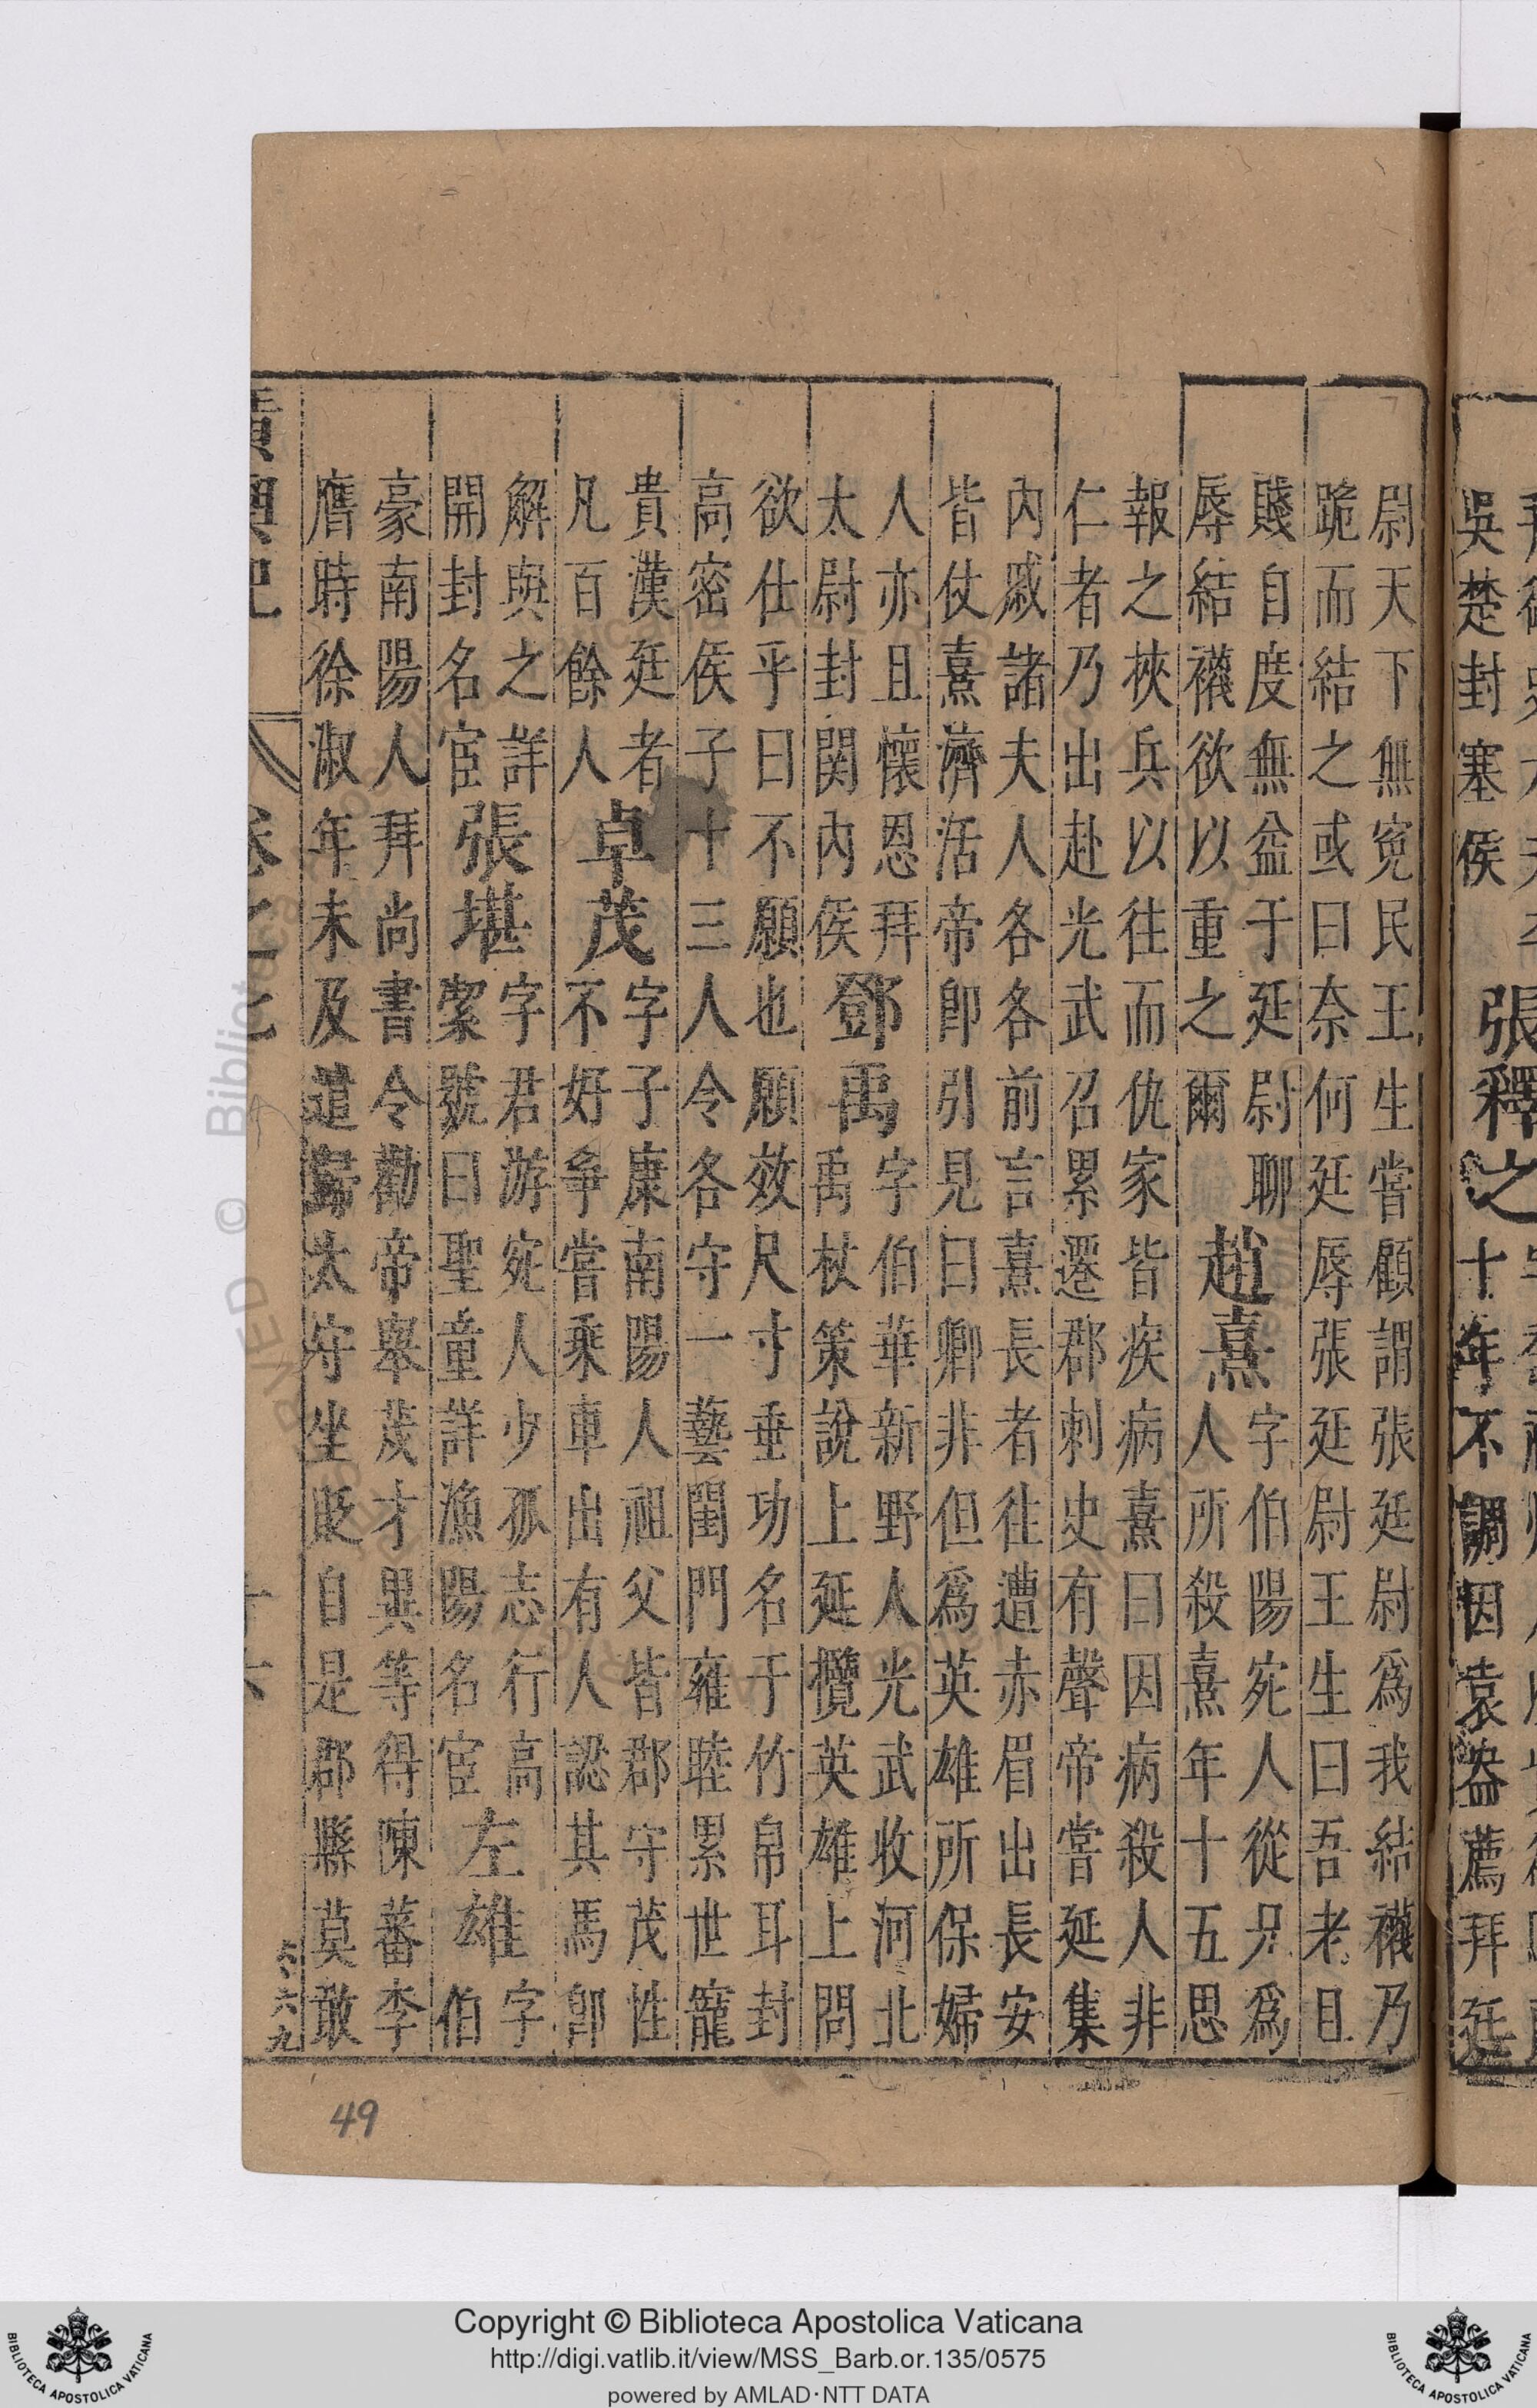 吳楚封塞侯
張釋之
十年不調因袁盎薦拜廷
尉天下無寃民王生嘗顧謂張廷尉爲我結襪乃
跪而結之或曰奈何廷辱張廷尉王生曰吾老且
賤自度無益于廷尉聊
辱結襪欲以重之爾
趙熹
字伯陽宛人從兄爲
人所殺熹年十五思
報之挾兵以往而仇家皆疾病熹曰因病殺人非
仁者乃出赴光武召累遷郡刺史有聲帝嘗延集
內戚諸夫人各各前言熹長者往遭赤眉出長安
皆仗熹濟活帝卽引見曰卿非但爲英雄所保婦
人亦且懷恩拜
太尉封関內侯
鄧禹
字伯華新野人光武收河北
禹杖策說上延攬英雄上問
欲仕乎曰不願也願效尺寸垂功名于竹帛耳封
高密侯子十三人令各守一藝閨門雍睦累世寵
貴漢廷者
凡百餘人
卓茂
字子康南陽人祖父皆郡守茂性
不好爭嘗乘車出有人認其馬卽
解與之詳
開封名宦
張堪
字君游宛人少孤志行高
潔號曰聖童詳漁陽名宦
左雄
字
伯
豪南陽人拜尚書令勸帝舉茂才異等得陳蕃李
膺時徐淑年未及遣歸太守坐貶自是郡縣莫敢
六九
49
Copyright © Biblioteca Apostolica Vaticana
http://digi.vatlib.it/view/MSS_Barb.or.135/0575
powered by AMLAD·NTT DATA